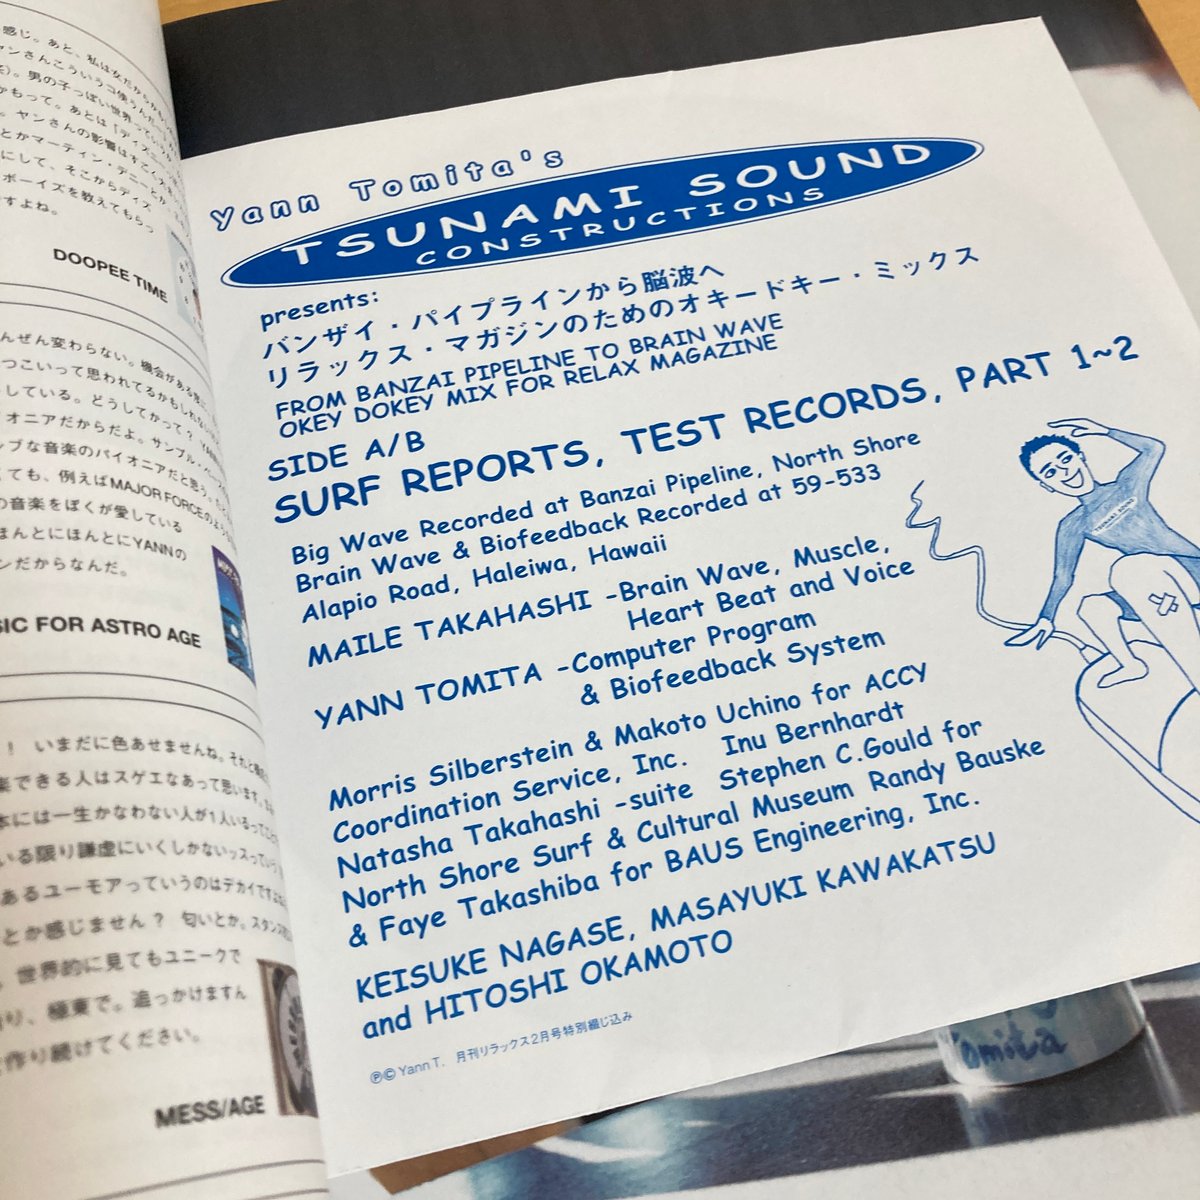 感じ。あと、私は女だから
DOOPEE TIME
ぜん変わらない。機会がある
つこいって思われてるかもしれな
している。どうしてかって？ YANN
オニアだからだよ。サンプル・
ップな音楽のパイオニアだと思う。
ても、例えばMAJOR FORCEの
の音楽をぼくが愛している
ほんとにほんとにYANNの
ンだからなんだ。
SIC FOR ASTRO AGE
！ いまだに色あせませんね。それと
楽できる人はスゲエなあって思います。
本には一生かなわない人が1人いるって
いる限り謙虚にいくしかないッスっていう
あるユーモアっていうのはデカイですよ
とか感じません？ 匂いとか。スタンス
、世界的に見てもユニークで
り、極東で。追っかけますん
作り続けてください。
MESS/AGE
Yann Tomita's
TSUNAMI SOUND
CONSTRUCTIONS
presents:
バンザイ・パイプラインから脳波へ
リラックス・マガジンのためのオキードキー・ミックス
FROM BANZAI PIPELINE TO BRAIN WAVE
OKEY DOKEY MIX FOR RELAX MAGAZINE
SIDE A/B
SURF REPORTS, TEST RECORDS, PART 1~2
Big Wave Recorded at Banzai Pipeline, North Shore
Brain Wave & Biofeedback Recorded at 59-533
Alapio Road, Haleiwa, Hawaii
MAILE TAKAHASHI -Brain Wave, Muscle,
Heart Beat and Voice
YANN TOMITA -Computer Program
& Biofeedback System
Morris Silberstein & Makoto Uchino for ACCY
Coordination Service, Inc. Inu Bernhardt
Natasha Takahashi -suite Stephen C.Gould for
North Shore Surf & Cultural Museum Randy Bauske
& Faye Takashiba for BAUS Engineering, Inc.
KEISUKE NAGASE, MASAYUKI KAWAKATSU
and HITOSHI OKAMOTO
℗©Yann T. 月刊リラックス2月号特別綴じ込み
TSUNAMI SOUND
Tomita